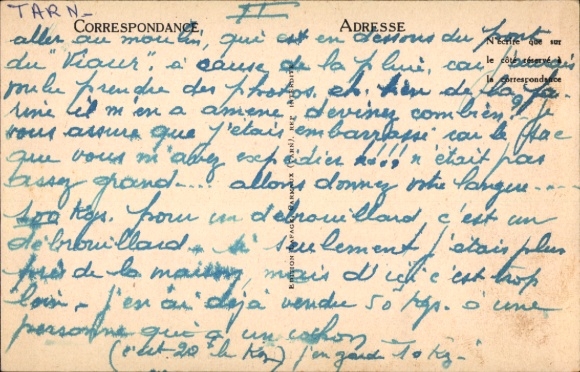 TARN_
II
CORRESPONDANCE
ADRESSE
N'écrire que sur
le côté réservé à
la correspondance
aller au moulin, qui est en dessous du pont
du "Viaur" à cause de la pluie, car j'aurais
voulu prendre des photos. eh bien de la fa-
rine il m'en a amené, devinez combien? Je
vous assure que j'étais embarrassé car le sac
que vous m'avez expédiés n'était pas
assez grand.... allons donnez votre langue....
100 Kgs. pour un débrouillard c'est un
débrouillard. si seulement j'étais plus
près de la maison, mais d'ici c'est trop
loin. j'en ai déjà vendu 50 Kgs. à une
personne qui a un cochon
(c'est 20 le Kg) j'en garde 10 Kg.